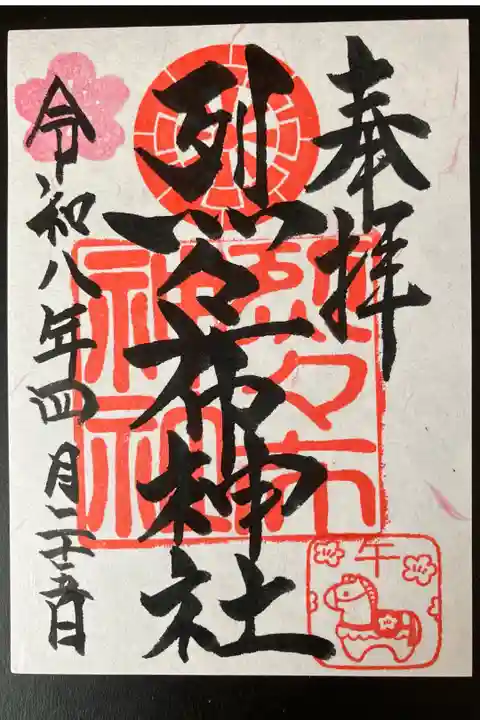 奉拝
烈々布神社
令和八年四月二十五日
烈々布
神社
午